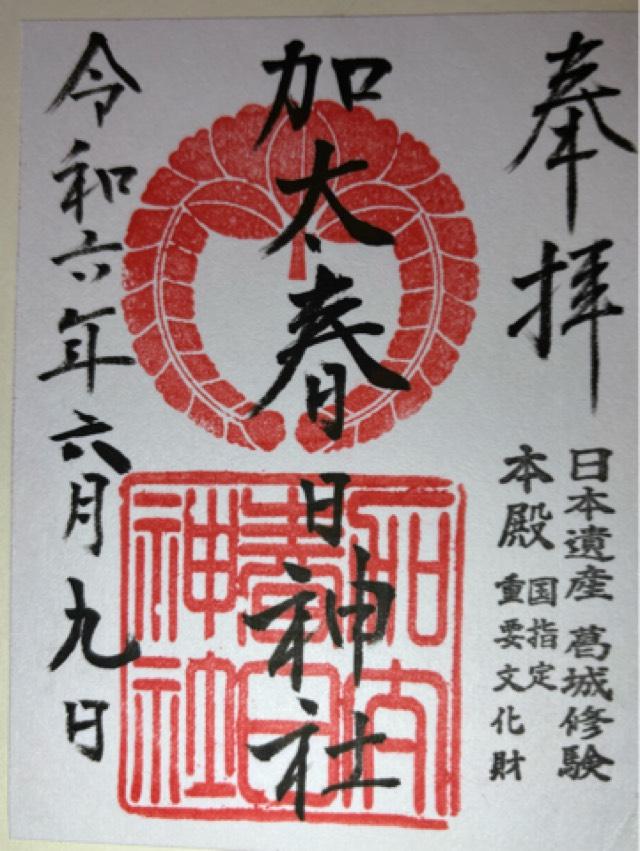 奉拝
日本遺産 葛城修験
本殿 国指定重要文化財
加太春日神社
加太
春日
神社
令和六年六月九日